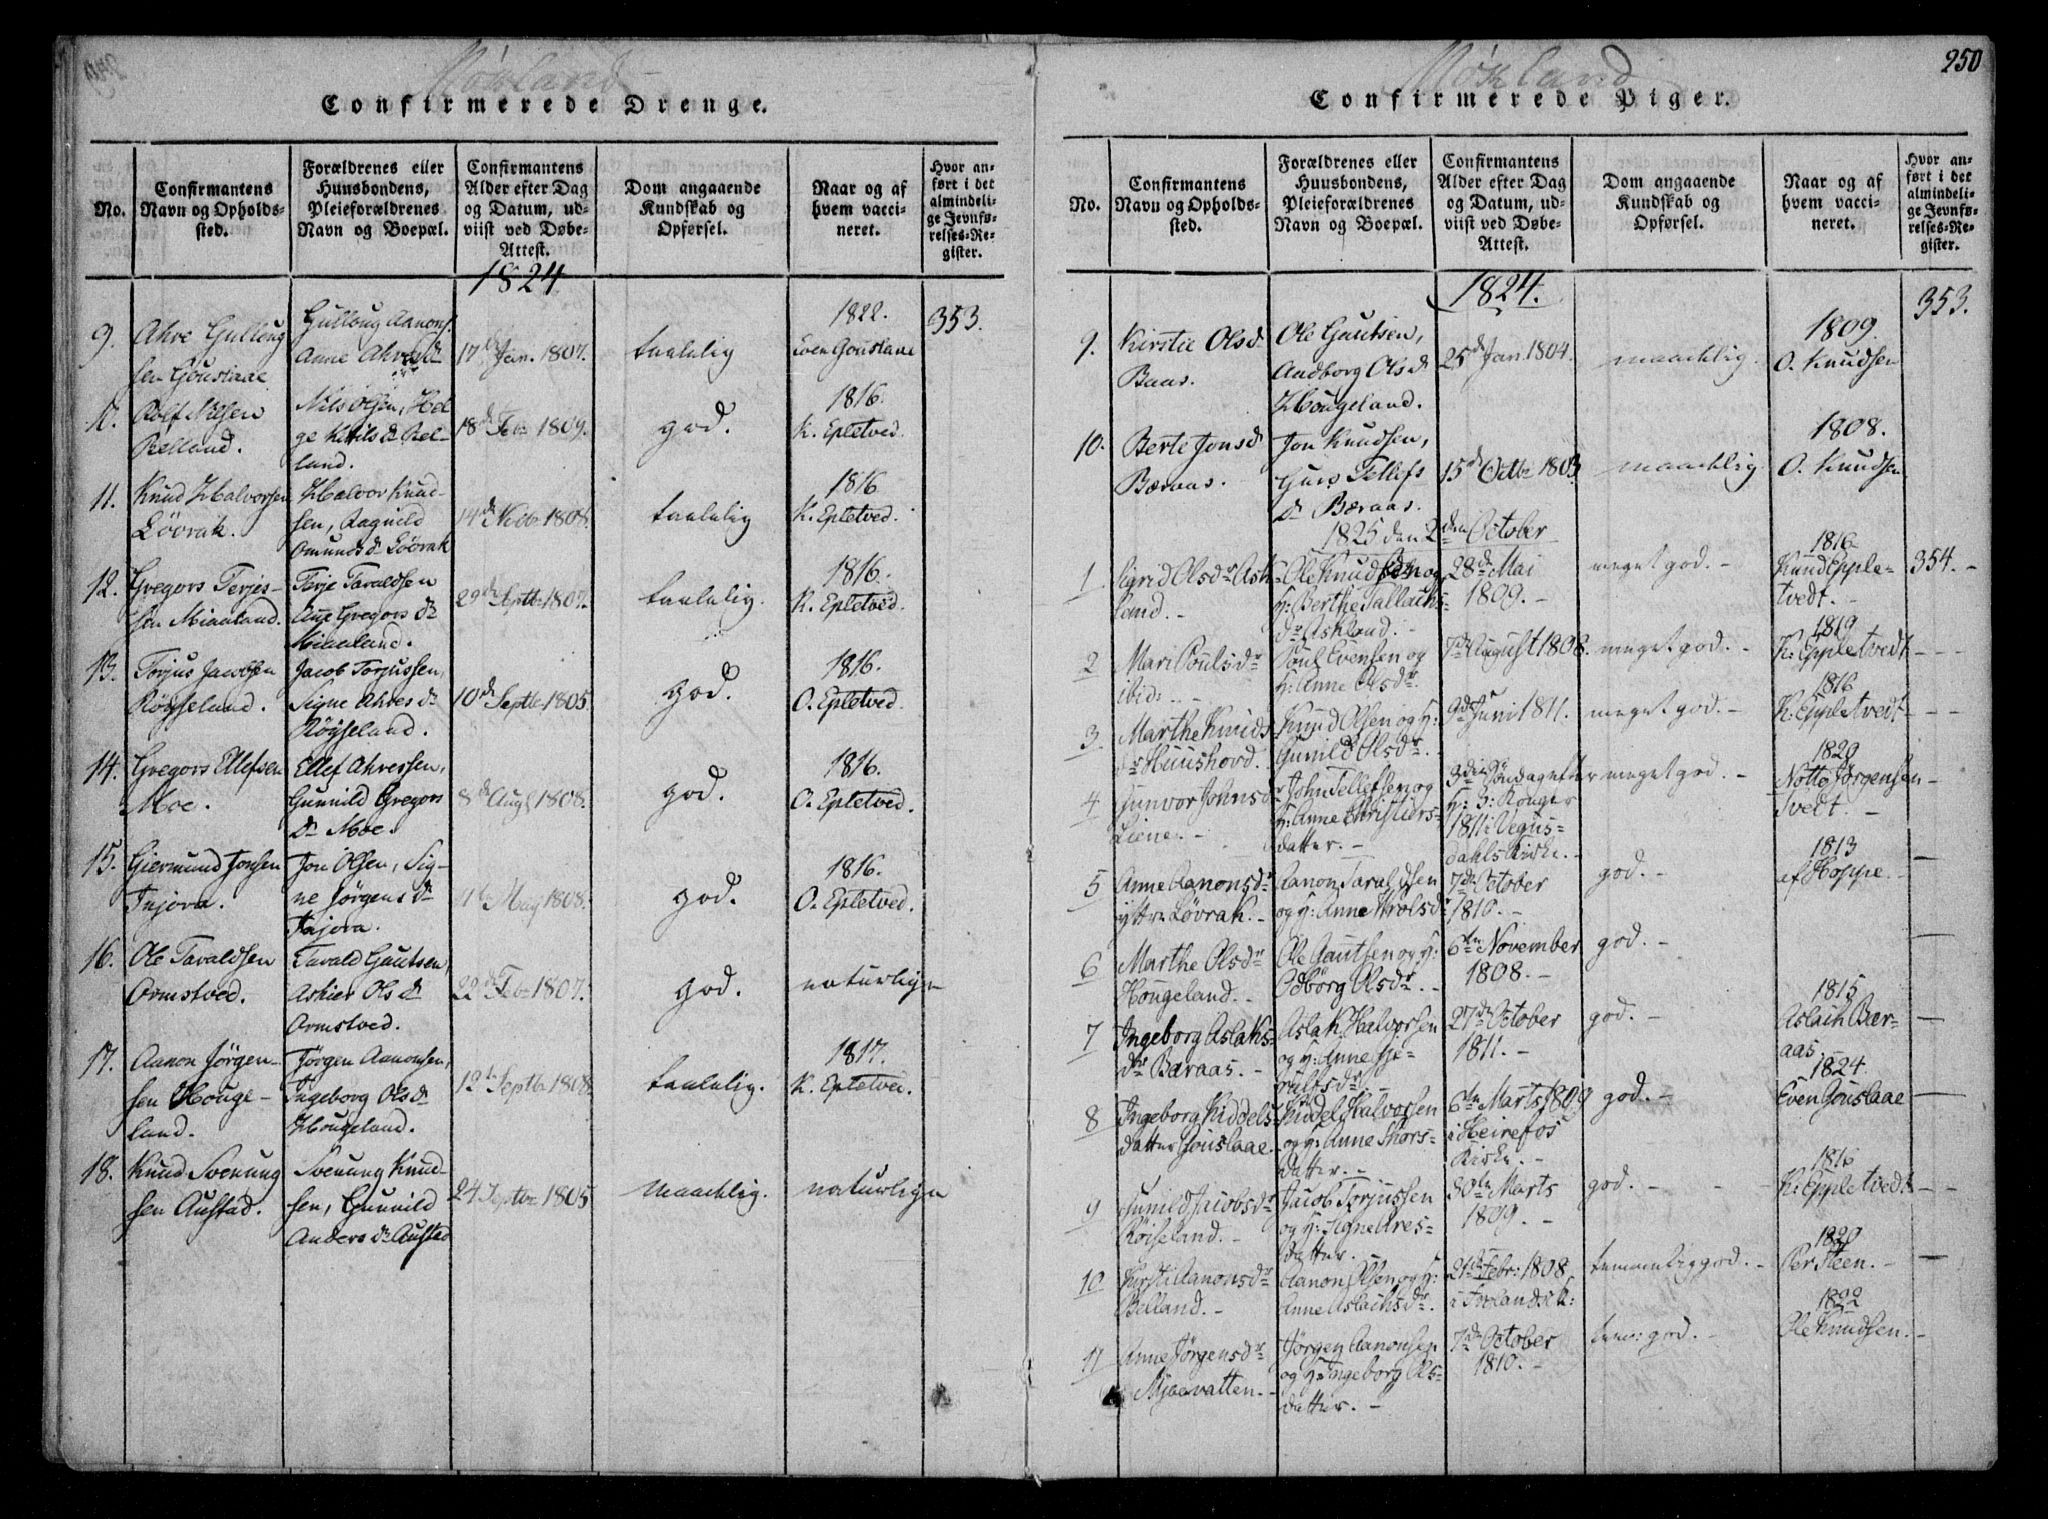 250
Confirmerede Drenge.
No.
Confirmantens
Navn og Opholds-
sted.
Forældrenes eller
Huusbondens,
Pleieforældrenes
Navn og Boepæl.
Confirmantens
Alder efter Dag
og Datum, ud-
viist ved Døbe-
Attest.
Dom angaaende
Kundskab og
Opførsel.
Naar og af
hvem vacci-
neret.
Hvor an-
ført i det
almindeli-
ge Jevnfø-
relses-Re-
gister.
1824
9.
Ahve Gulloug
sen Gouslaae
Gulloug Aanons.
Anne Ahvesd
17d Jan. 1807.
taalelig
1822.
Even Gouslaae
353.
10.
Rolf Nilsen
Relland.
Nils Olsen, Hel
ge Ketilsdr Rel-
land.
18d Febr 1809.
god.
1816.
K. Epletved.
11.
Knud Halvorsen
Løvrak.
Halvor Knud-
sen, Ragnild
Omundsdr Løvrak
14d Novbr 1808.
taalelig
1816
K. Epletved.
12.
Gregors Terjes-
sen Miaaland.
Terje Tavaldsen
Aue Gregorsdr
Miaaland.
29d Septbr 1807.
taalelig.
1816.
K. Epletved.
13.
Torjus Jacobsen
Röyseland.
Jacob Torjussen,
Signe Ahvesdr
Röyseland.
10d Septbr 1805
god.
1816.
O. Epletved.
14.
Gregors Ellefsen
Moe.
Ellef Ahvessen,
Gunnild Gregors
dr Moe.
8d Aug 1808.
god.
1816.
O. Epletved.
15.
Giermund Jonsen
Tnjova.
Jon Olsen, Sig-
ne Jørgensdr
Tnjova.
May 1808.
god.
1816.
O. Epletved.
16.
Ole Tavaldsen
Ormstved.
Tavald Gautsen,
Askier Olsdr
Ormstved.
22d Febr 1807.
god.
naturlign
17.
Aanon Jörgen-
sen Houge-
land.
Jörgen Aanonsen,
Ingeborg Olsdr
Hougeland.
12t Septbr 1808
taalelig.
1817.
K. Epletved.
18.
Knud Svenung
sen Austad.
Svenung Knud-
sen, Gunnild
Andersdr Austad
24 Septbr 1805
Maadelig.
naturlign
Confirmerede Piger.
No.
Confirmantens
Navn og Opholds-
sted.
Forældrenes eller
Huusbondens,
Pleieforældrenes
Navn og Boepæl.
Confirmantens
Alder efter Dag
og Datum, ud-
viist ved Døbe-
Attest.
Dom angaaende
Kundskab og
Opførsel.
Naar og af
hvem vacci-
neret.
Hvor an-
ført i det
almindeli-
ge Jevnfø-
relses-Re-
gister.
1824.
353.
9.
Kirstie Olsd
Baas.
Ole Gautsen,
Aadborg Olsd
Hougeland.
25d Jan. 1804.
maadelig.
1809.
O. Knudsen
10.
Berte Jonsd
Bæraas.
Jon Knudsen,
Guro Tellefs
dr Bæraas.
15d Octbr 1803
maadelig.
1808.
O. Knudsen
1825 den 2den October
1
Sigrid Olsdr Ask-
land. -
Ole Knudsen og
H: Berthe Tallachs-
dr Askland. -
28de Mai
1809. -
meget god. -
1816
Knud Epple-
tvedt. -
354. -
2
Mari Poulsdr
ibid: -
Poul Evensen og
H: Anne Olsdr.
7de August 1808.
meget god. -
1819
K: Eppletvedt
3
Marthe Knuds
dr Huushovd.
Knud Olsen og H:
Gunild Olsdr.
9de Juni 1811.
meget god. -
1816
K: Eppletvedt
4
Gunvor Johnsd
Liene. -
John Tellefsen og
H: Anne Christiers-
datter. -
3die Söndag efter
H: 3: Konger
1811 i Vegus-
dahls Kirke. -
meget god. -
1820
Notto Jørgensen
Tvedt. -
5
Anne Aanonsdr
yttr Løvrak. -
Aanon Taraldsen
og H: Anne
7de October
1810. -
god. -
1813
af Hoppe. -
6
Marthe Olsdr
Hougeland. -
Ole Gautsen og H:
Odborg Olsdr. -
6te November
1808. -
god. -
7
Ingeborg Aslaks-
dr Bæraas. -
Aslak Halvorsen
og H: Anne
27de October
1811. -
god. -
1815
Aslach Bær-
aas
8
Ingeborg Kiddels-
datter Gouslaae.
Kiddel Halvorsen
og H: Anne Thors-
datter. -
6te Marts 1809
i Heirefos
Kirke. -
god. -
1824
Even Gouslaae
9
Gunild Jacobsdr
Röiseland. -
Jacob Torjussen
og H: Signe Ares-
datter.
30te Marts
1809. -
god. -
1816
K: Eppletvedt
10
Kirsti Aanonsdr
Belland. -
Aanon Olsen og H:
Anne Aslachsdr.
21de Febr: 1808
i Ivelands K:
temmelig god. -
1820
Per Steen. -
11
Anne Jørgensdr
Mjaavatten. -
Jørgen Aanonsen
og H: Ingeborg Ols-
datter. -
7de October
1810. -
tem: god. -
1822
Ole Knudsen. -